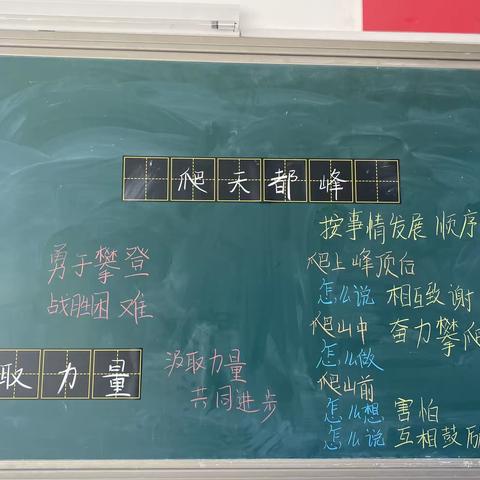 爬天都峰
按事情发展 顺序
爬上峰顶后
怎么说 相互致谢
爬山中 奋力攀爬
怎么做
爬山前
怎么想 害怕
怎么说 互相鼓励
勇于攀登
战胜困难
取力量
汲取力量
共同进步